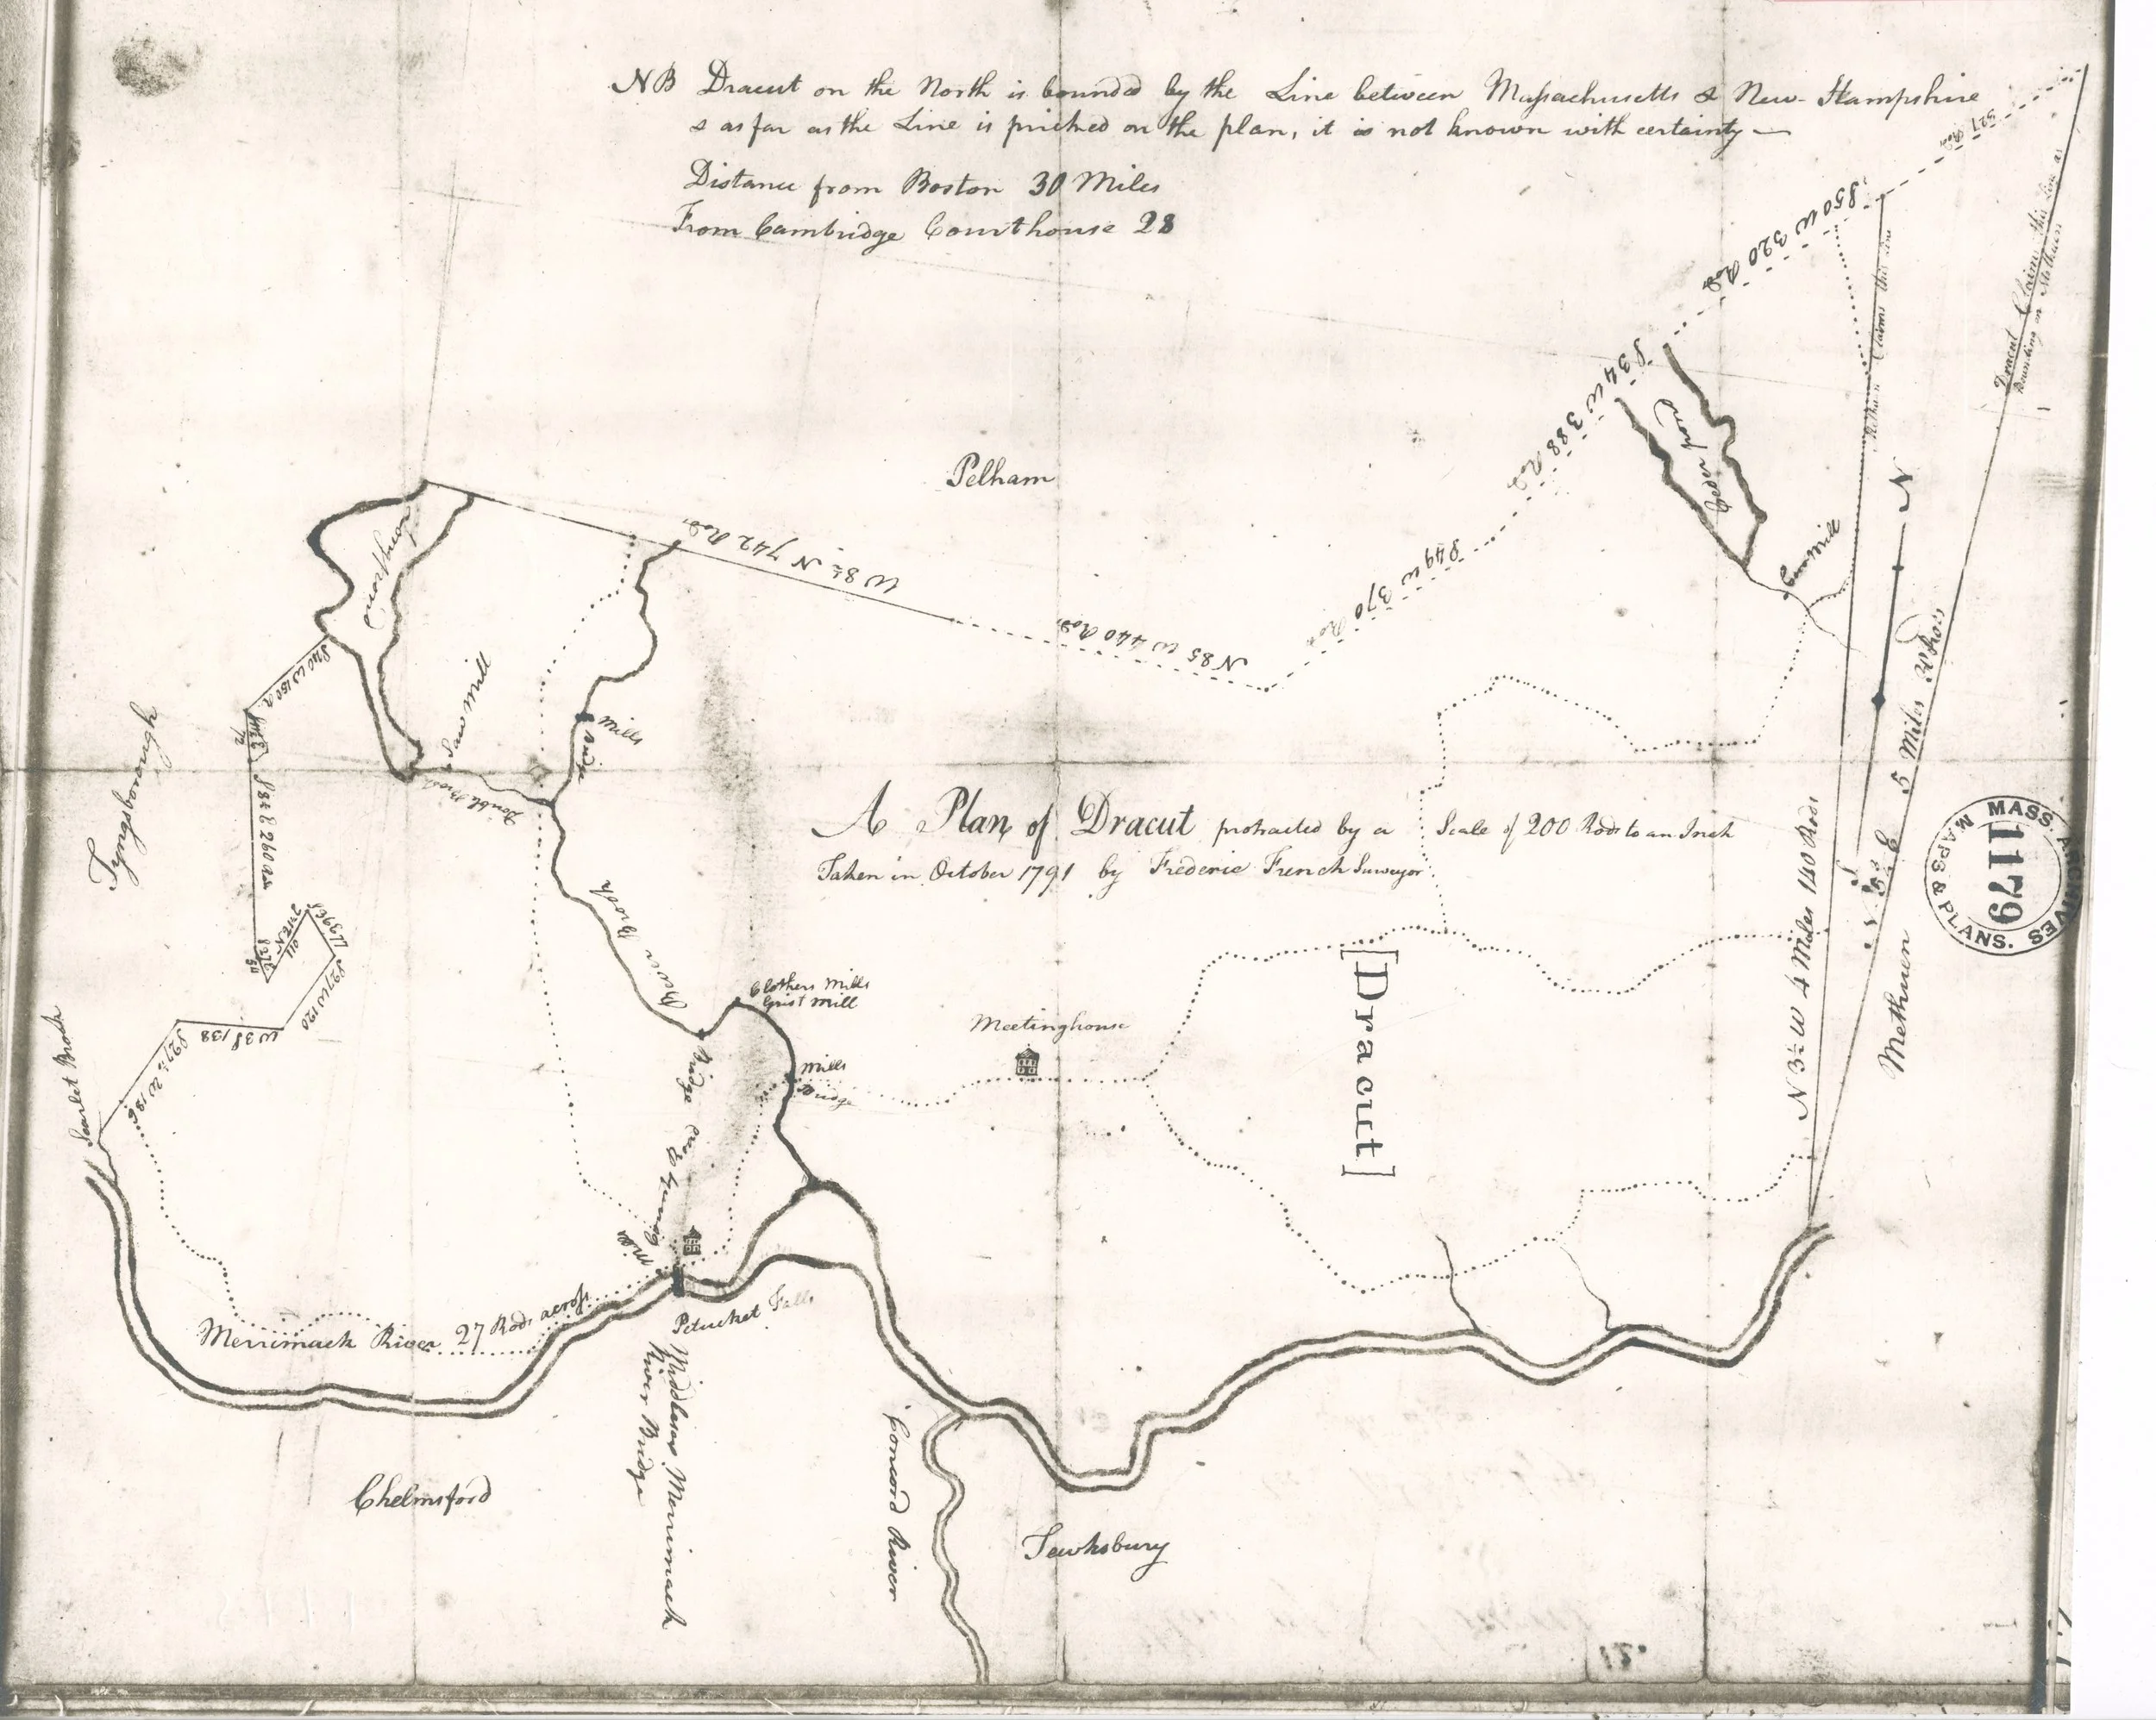 NB Dracut on the North is bounded by the Line between Massachusetts & New-Hampshire
& as far as the Line is pricked on the plan, it is not known with certainty
Distance from Boston 30 Miles
From Cambridge Courthouse 28
327 Rods
S50W 320 Rods
S34W 388 Rods
S49W 370 Rods
N85W 440 Rods
W 8½ N 742 Rods
Dracut Claims this Line as
Bounding on Methuen
Claims this Line
Pelham
Cedar pond
Cornmill
N
Long pond
Saw mill
Mills
Bridge
Double Brook
Tyngsborough
S40W150
S¾E 260 Rods
A Plan of Dracut protracted by a Scale of 200 Rods to an Inch
Taken in October 1791 by Frederic French Surveyor
5 Miles
MASS. ARCHIVES
MAPS & PLANS.
1179
N 3½ W 4 Miles 140 Rods
Methuen
S27W120
W3S 138
S27½W 186
Scarlet Brook
Beaver Brook
Clothers Mills
Grist Mill
Mills
Bridge
Bridge
Meetinghouse
[Dracut]
Mills
Merrimack River 27 Rods across
Petucket Falls
Middlesex Merrimack
River Bridge
Concord River
Chelmsford
Tewksbury